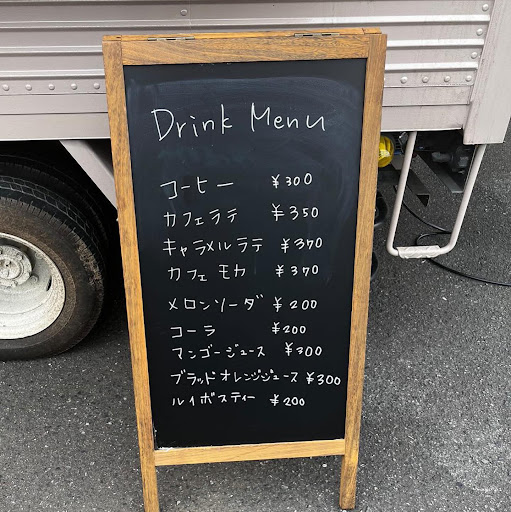 Drink Menu
コーヒー ¥300
カフェラテ ¥350
キャラメルラテ ¥370
カフェモカ ¥370
メロンソーダ ¥200
コーラ ¥200
マンゴージュース ¥300
ブラッドオレンジジュース ¥300
ルイボスティー ¥200